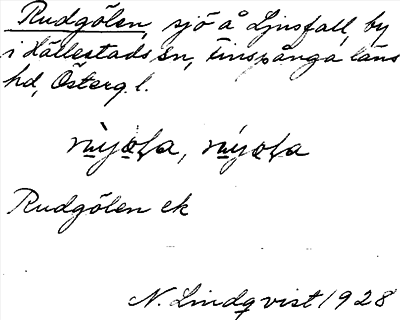 Rudgölen, sjö å Ljusfall, by
i Hällestads sn, Finspånga läns
hd, Österg. l.
Rudgölen ek
N. Lindqvist 1928